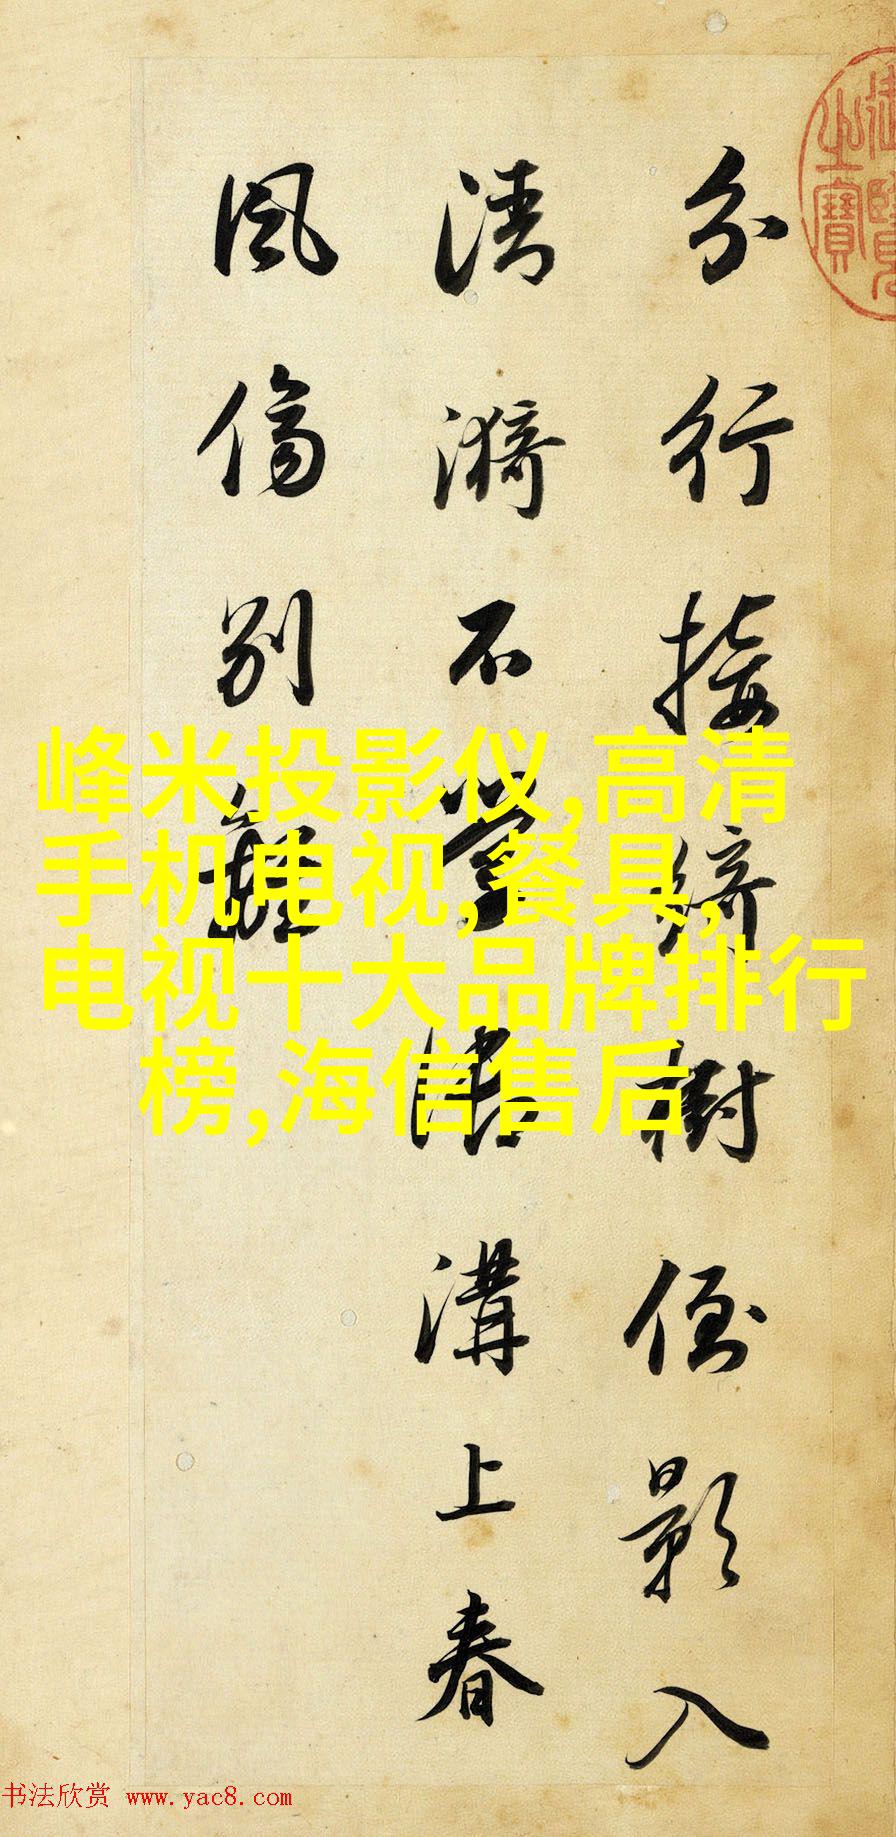 分行接綺樹倒影入
清漪不學御溝上春
風傷別離
峰米投影仪,高清
手机电视,餐具,
电视十大品牌排行
榜,海信售后
书法欣赏 www.yac8.com